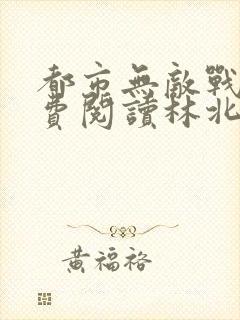 都市無敵戰
費閱讀林北
黃福裕